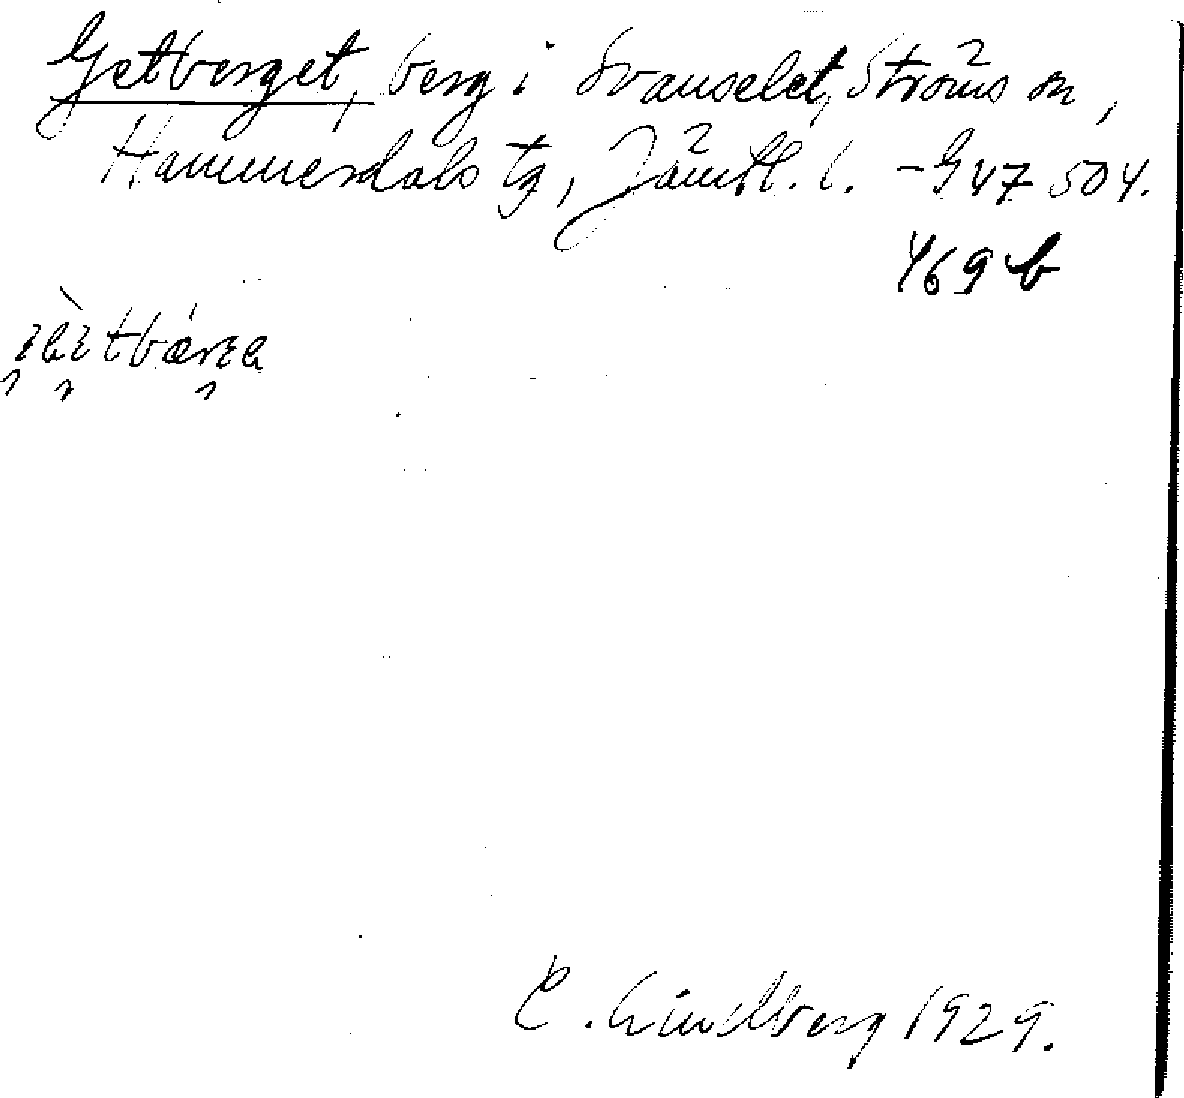 Getberget, berg i Svanselet, Ströms sn,
Hammerdals tg, Jämtl. l. - G v 7 504.
469 b
C. Lindberg 1929.